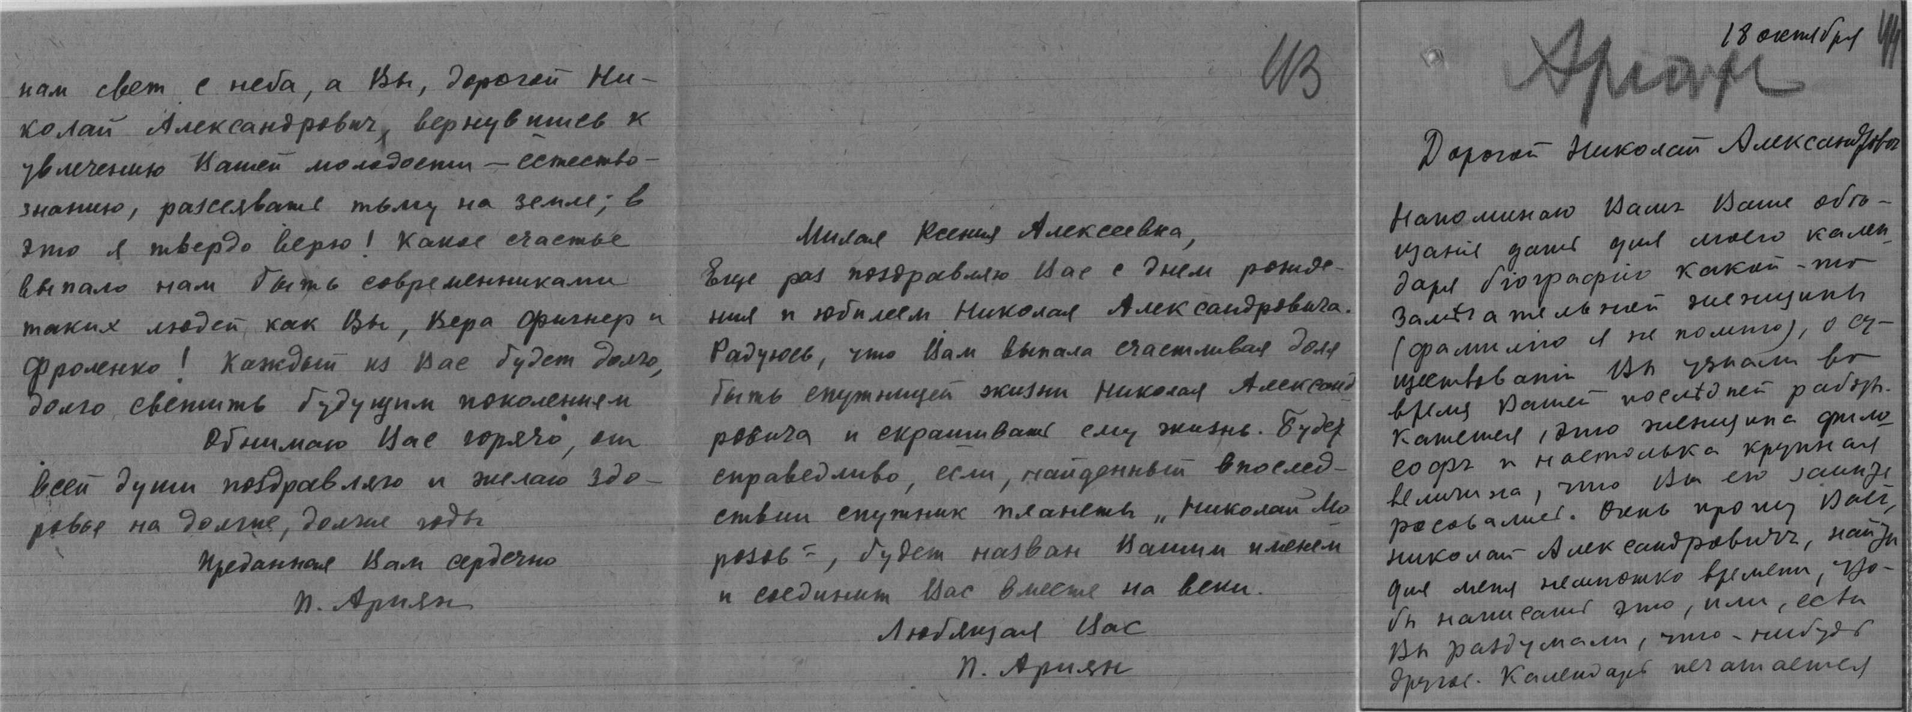 нам свет с неба, а Вы, дорогой Ни-
колай Александрович, вернувшись к
увлечению Вашей молодости — естество-
знанию, рассеиваете тьму на земле; в
это я твердо верю! Какое счастье
выпало нам быть современниками
таких людей, как Вы, Вера Фигнер и
Фроленко! Каждый из Вас будет долго,
долго светить будущим поколениям
Обнимаю Вас горячо, от
всей души поздравляю и желаю здо-
ровье на долгие, долгие годы
Преданная Вам сердечно
П. Ариян
43
Милая Ксения Алексеевна,
Еще раз поздравляю Вас с днем рожде-
ния и юбилеем Николая Александровича.
Радуюсь, что Вам выпала счастливая доля
быть спутницей жизни Николая Александ
ровича и скрашивать ему жизнь. Будет
справедливо, если, найденный впослед-
ствии спутник планеты „Николай Мо
розов", будет назван Вашим именем
и соединит Вас вместе на веки.
Любящая Вас
П. Ариян
18 октября
44
Ариян
Дорогой Николай Александрович
Напоминаю Вамъ Ваше обѣ-
щанiе дать для моего кален
даря бiографiю какой-то
замѣчательной женщины
(фамилiю я не помню), о су-
ществованiи Вы узнали во
время Вашей послѣдней работы.
Кажется, это женщина фило
софъ и настолько крупная
величина, что Вы ею заинте
ресовались. Очень прошу Васъ,
Николай Александровичъ, найди
для меня немножко времени, что-
бы написать это, или, если
Вы раздумали, что-нибудь
другое. Календарь печатается